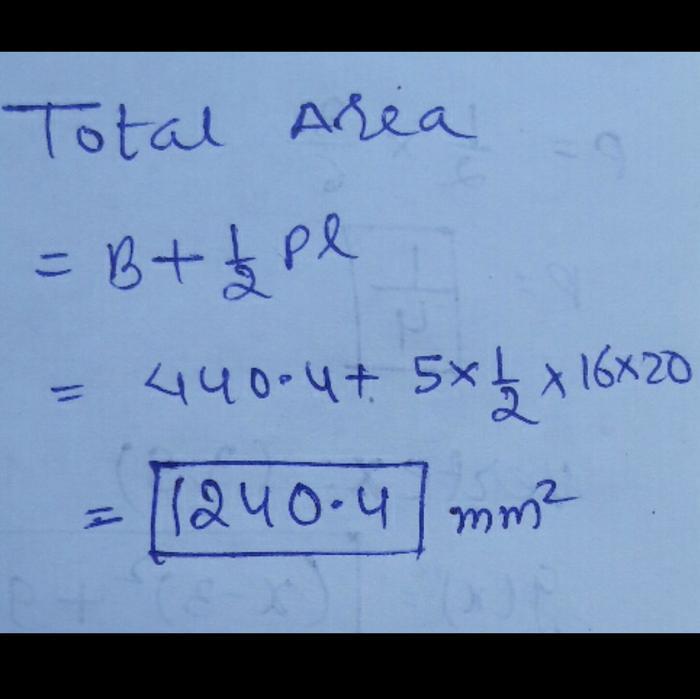 Total Area
= B + 1/2 Pl
= 440.4 + 5 × 1/2 × 16 × 20
= 1240.4 mm²